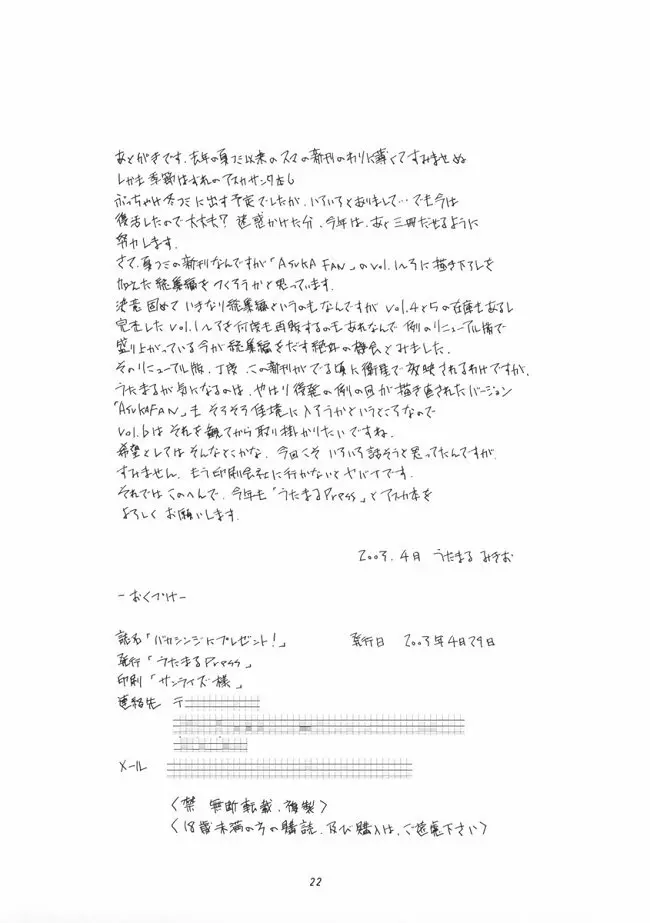 あとがきです、去年の夏コミ以来のスマの新刊のわりに薄くてすみませぬ
しかも季節はずれのアスカサンタ本し
ぶっちゃけ冬コミに出す予定でしたが、いろいろとありまして…でも今は
復活したので大丈夫? 迷惑かけた分、今年は、あと三冊だせるように
努力します。
さて、夏コミの新刊なんですが「ASUKA FAN」のvol.1〜3に描き下ろしを
加えた総集編をつくろうかと思っています。
決意固めていきなり総集編というのもなんですが vol.4と5の在庫もあるし
完売したvol.1〜3を何度も再販するのもあれなんで 例のリニューアル版で
盛り上がっている今が総集編をだす絶好の機会とみました。
そのリニューアル版、丁度、この新刊がでる頃に衛星で放映されるわけですが、
うたまるが気になるのは、やはり後発の例の回が描き直されたバージョン
「ASUKAFAN」も そろそろ佳境に入ろうかというところなので
vol.6は それを観てから取り掛かりたいですね。
希望としてはそんなとこかな、今回こそ いろいろ話そうと思ってたんですが、
すみません、もう印刷会社に行かないとヤバイです。
それでは このへんで、今年も「うたまるPress」とアスカ本を
よろしく お願いします。
2003. 4月 うたまる みきお
－おくづけ－
誌名「バカシンジにプレゼント!」 発行日 2003年4月29日
発行「うたまるPress」
印刷「サンライズ様」
連絡先 〒
メール
〈禁 無断転載、複製〉
〈18歳未満の方の購読、及び購入は、ご遠慮下さい〉
22